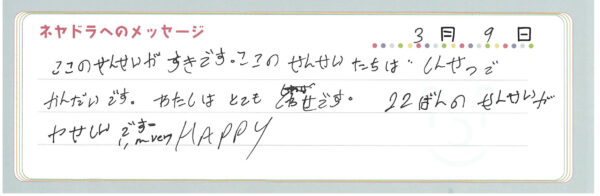 ネヤドラへのメッセージ
3月9日
ここのせんせいが すきです。ここの せんせい たちは しんせつで
かんだいです。 わたしは とても しあわせです。 22ばんの せんせいが
やせしいです
I'm very HAPPY